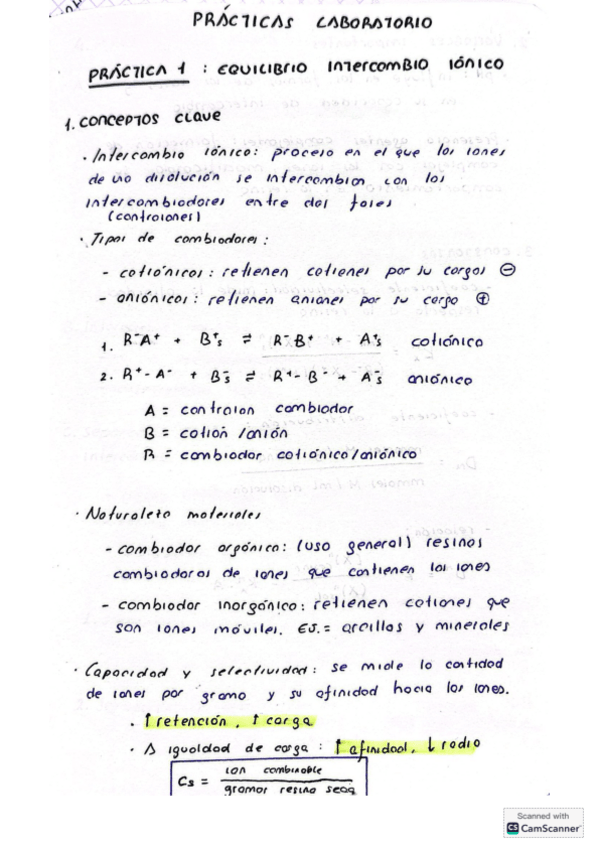 PRÁCTICAS LABORATORIO
PRÁCTICA 1 : EQUILIBRIO INTERCOMBIO IÓNICO
1. CONCEPTOS CLAVE
· Intercambio iónico: proceso en el que los iones
de una disolución se intercambian con los
intercambiadores entre dos fases
(contraiones)
· Tipos de cambiadores:
- catiónicos: retienen cationes por su cargas ⊖
- aniónicos: retienen aniones por su carga ⊕
1. R⁻A⁺ + B⁺s ⇌ R⁻B⁺ + A⁺s catiónico
2. R⁺-A⁻ + B⁻s ⇌ R⁺-B⁻ + A⁻s aniónico
A = contraion cambiador
B = catión /anión
R = cambiador catiónico/aniónico
· Naturaleza materiales
- cambiador orgánico: (uso general) resinas
cambiadoras de iones que contienen los iones
- cambiador inorgánico: retienen cationes que
son iones móviles. EJ.= arcillas y minerales
· Capacidad y selectividad: se mide la cantidad
de iones por gramo y su afinidad hacia los iones.
· ↑ retención, ↑ carga
· A igualdad de carga : ↑ afinidad, ↓ radio
Cs = ion cambiable
gramos resina seca
Scanned with
CS CamScanner